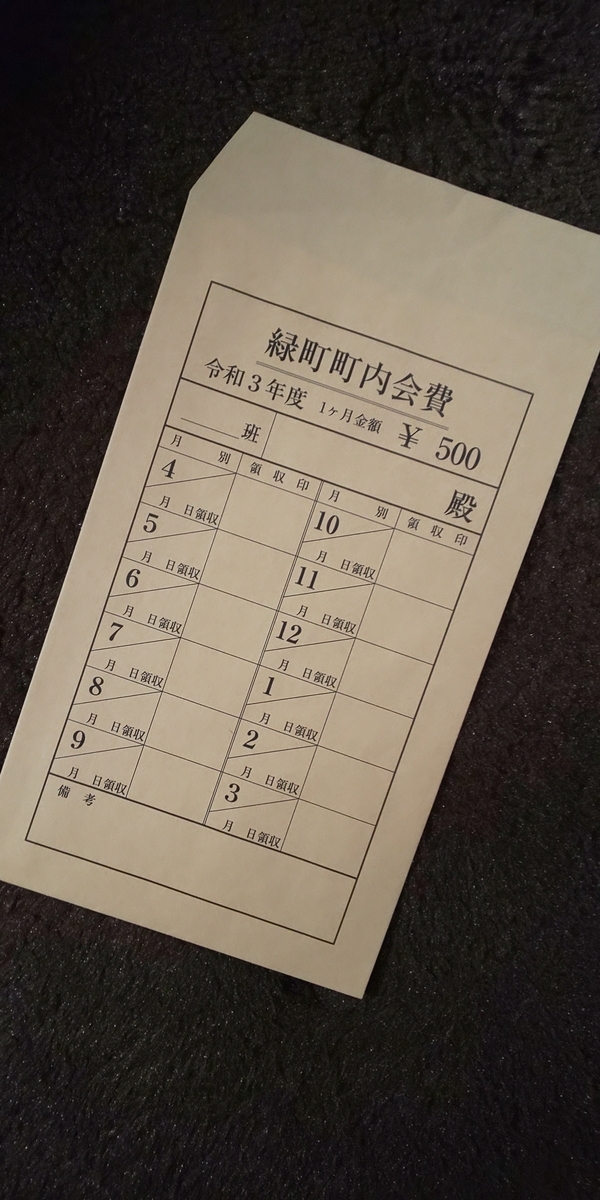 緑町町内会費
令和3年度 1ヶ月金額 ¥ 500
班
殿
月 別 領収印 月 別 領収印
4 10
月 日領収 月 日領収
5 11
月 日領収 月 日領収
6 12
月 日領収 月 日領収
7 1
月 日領収 月 日領収
8 2
月 日領収 月 日領収
9 3
月 日領収 月 日領収
備考